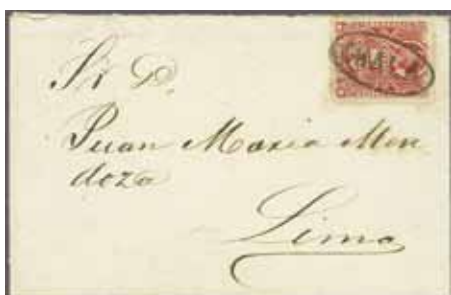 Sr D.
Juan Maria Men
doza
Lima